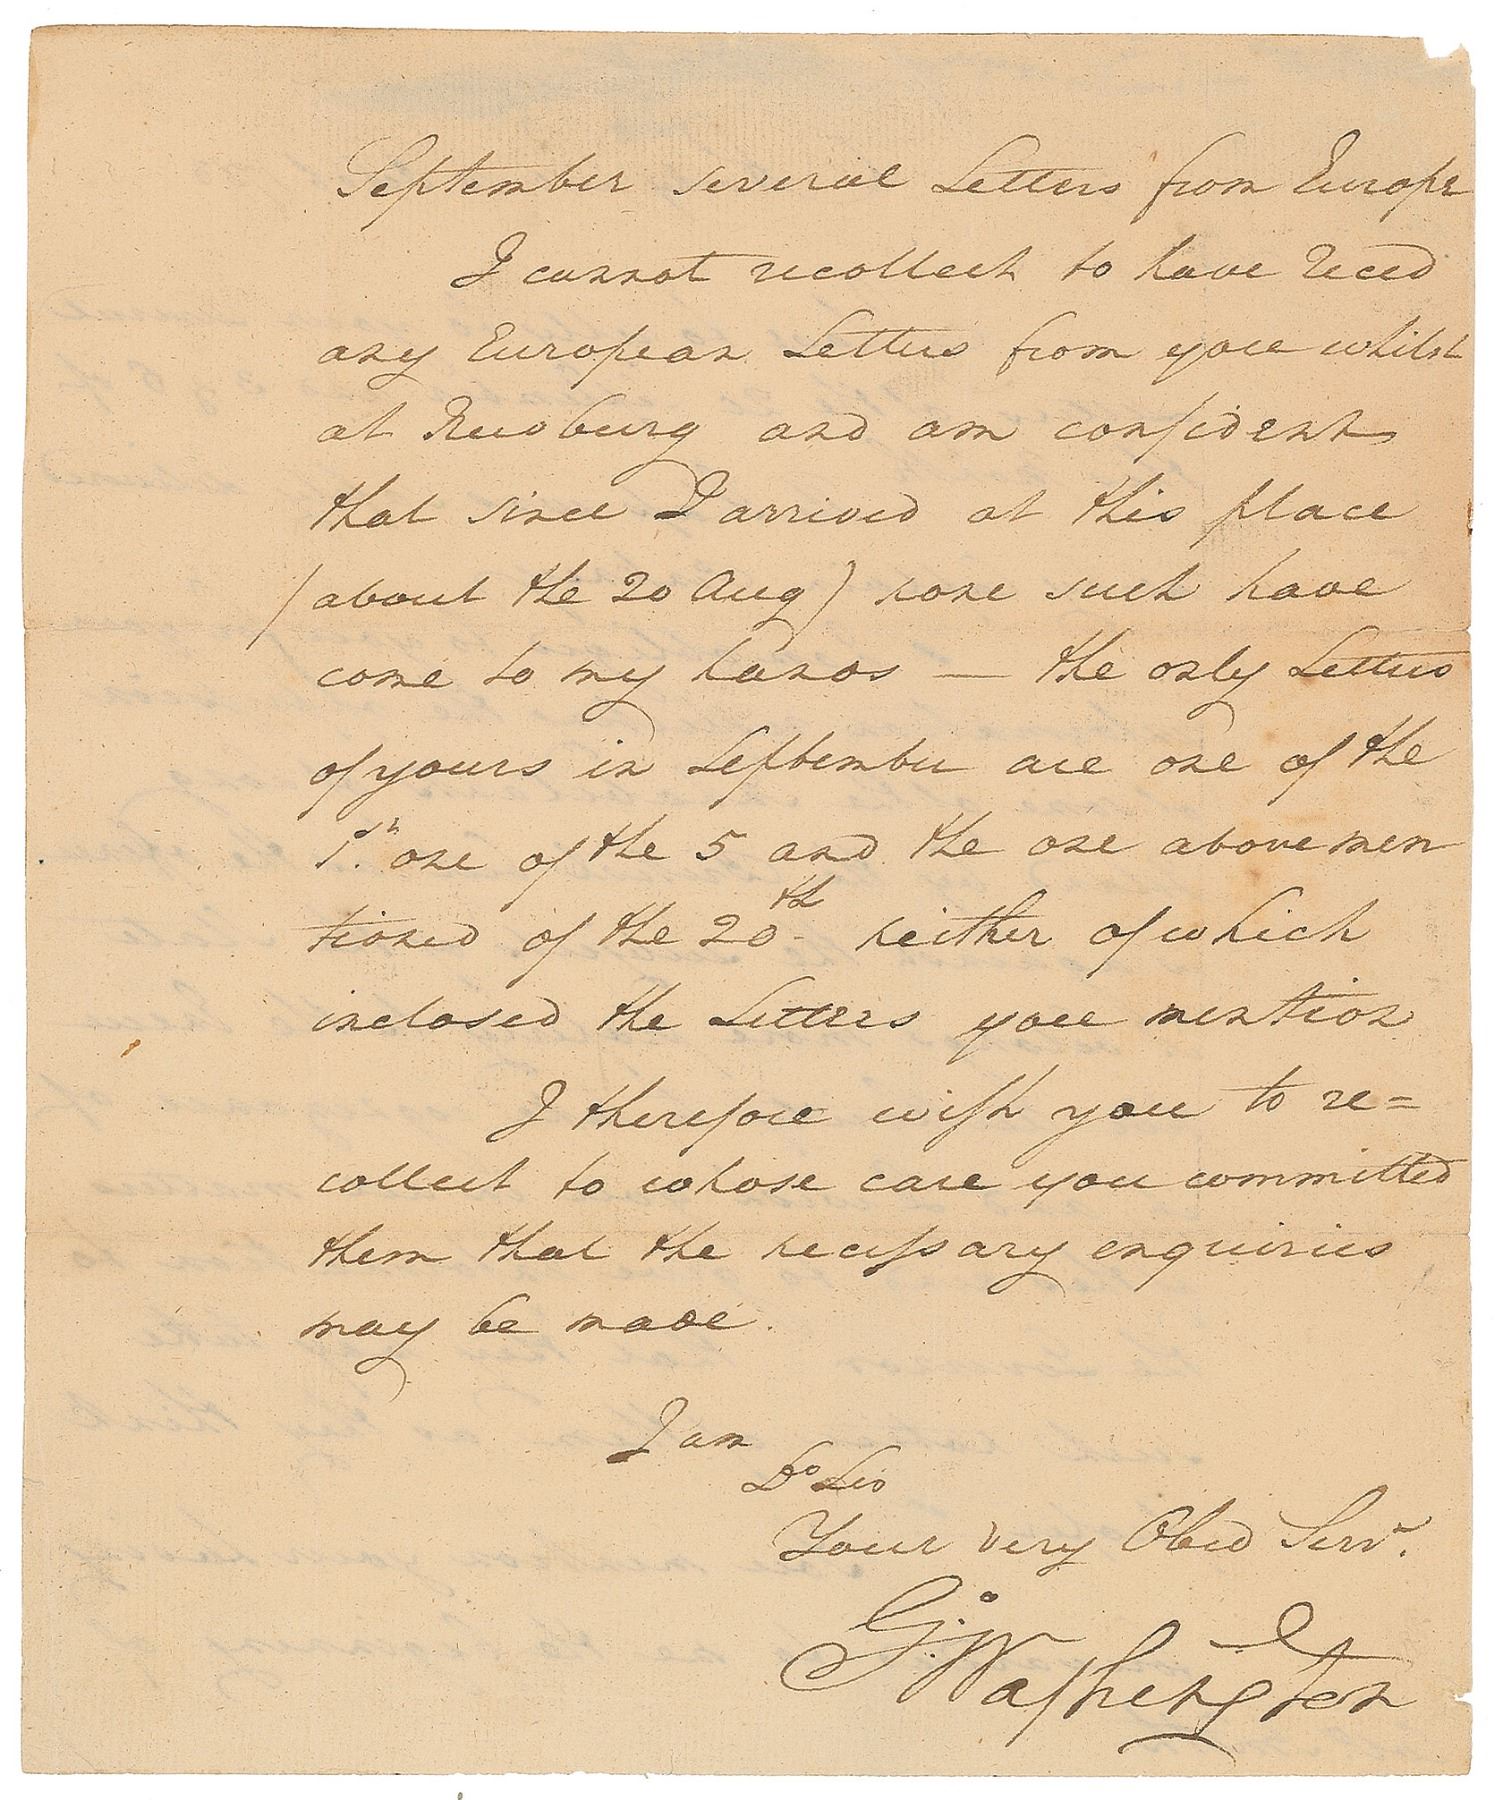 September several Letters from Europe
I cannot recollect to have reced
any European Letters from you whilst
at Newburg and am confident
that since I arrived at this place
(about the 20 Aug) none such have
come to my hands — the only Letters
of yours in September are one of the
1st. one of the 5 and the one abovemen
tioned of the 20th neither of which
inclosed the Letters you mention
I therefore wish you to re=
collect to whose care you committed
them that the necessary enquiries
may be made.
I am
Dr Sir
Your very Obed Servt.
Go: Washington